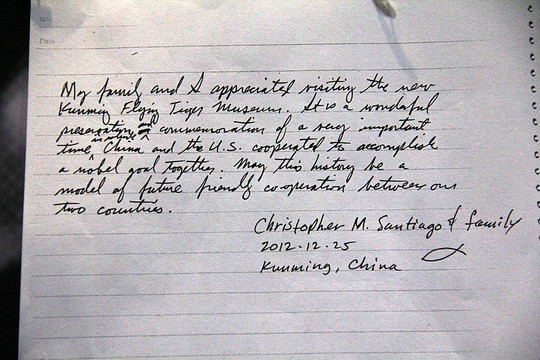 No.
Date
My family and I appreciated visiting the new
Kunming Flying Tiger Museum. It is a wonderful
preservation and commemoration of a very important
time, in which China and the U.S. cooperated to accomplish
a nobel goal together. May this history be a
model of future friendly co-operation between our
two countries.
Christopher M. Santiago & family
2012.12.25
Kunming, China